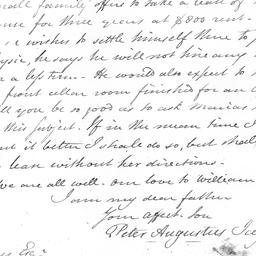 small family offers to take a lease of
for three years at $800 rent.
he wishes to settle himself there to
he says he will not hire any
for a less time. He would also expect to
front cellar room finished for an
will you be so good as to ask Marias
this subject. If in the mean time I
it better I shall do so, but shall
lease without her directions.
We are all well. Our love to William
I am my dear father
Your affect. Son
Peter Augustus
Esqr